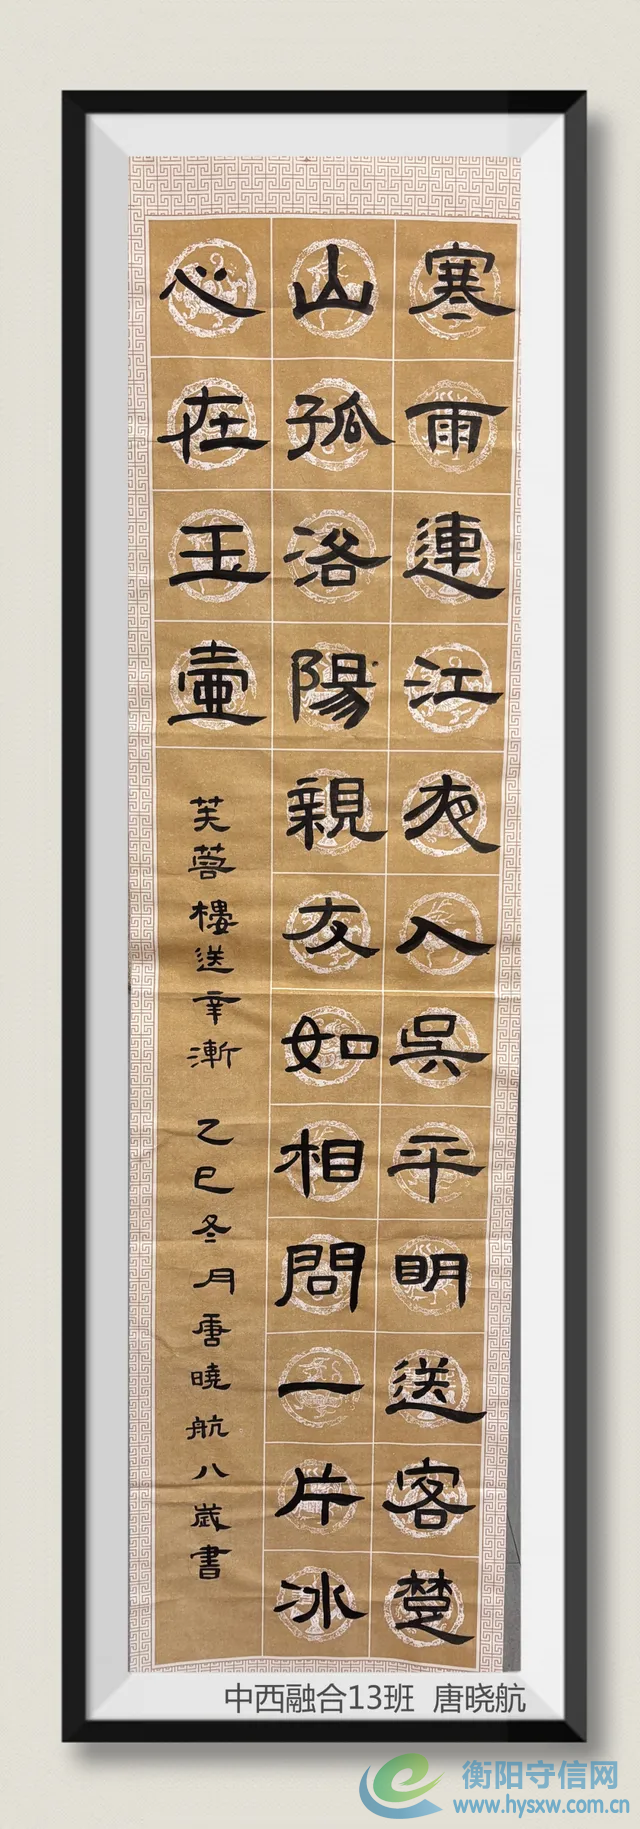 寒雨連江夜入吳平明送客楚
山孤洛陽親友如相問一片冰
心在玉壷
芙蓉樓送辛漸 乙巳冬月唐曉航八歲書
中西融合13班 唐晓航
衡阳守信网
www.hysxw.com.cn